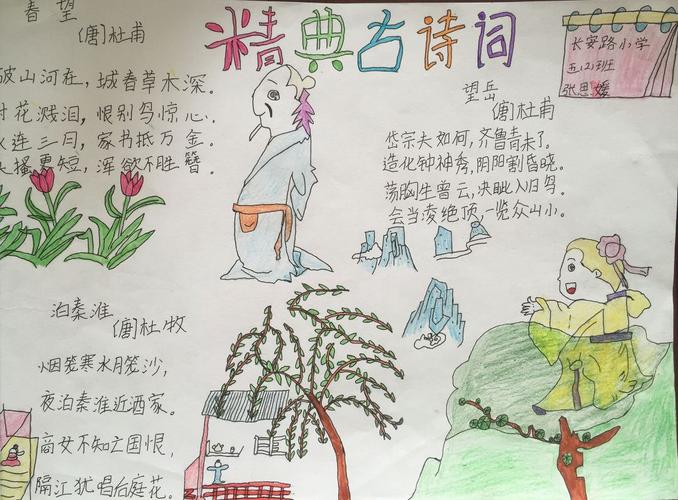 精典古诗词
长安路小学
五(2)班
张思媛
春望
(唐)杜甫
破山河在，城春草木深。
花溅泪，恨别鸟惊心。
连三月，家书抵万金。
搔更短，浑欲不胜簪。
望岳
(唐)杜甫
岱宗夫如何，齐鲁青未了。
造化钟神秀，阴阳割昏晓。
荡胸生曾云，决眦入归鸟。
会当凌绝顶，一览众山小。
泊秦淮
(唐)杜牧
烟笼寒水月笼沙，
夜泊秦淮近酒家。
商女不知亡国恨，
隔江犹唱后庭花。